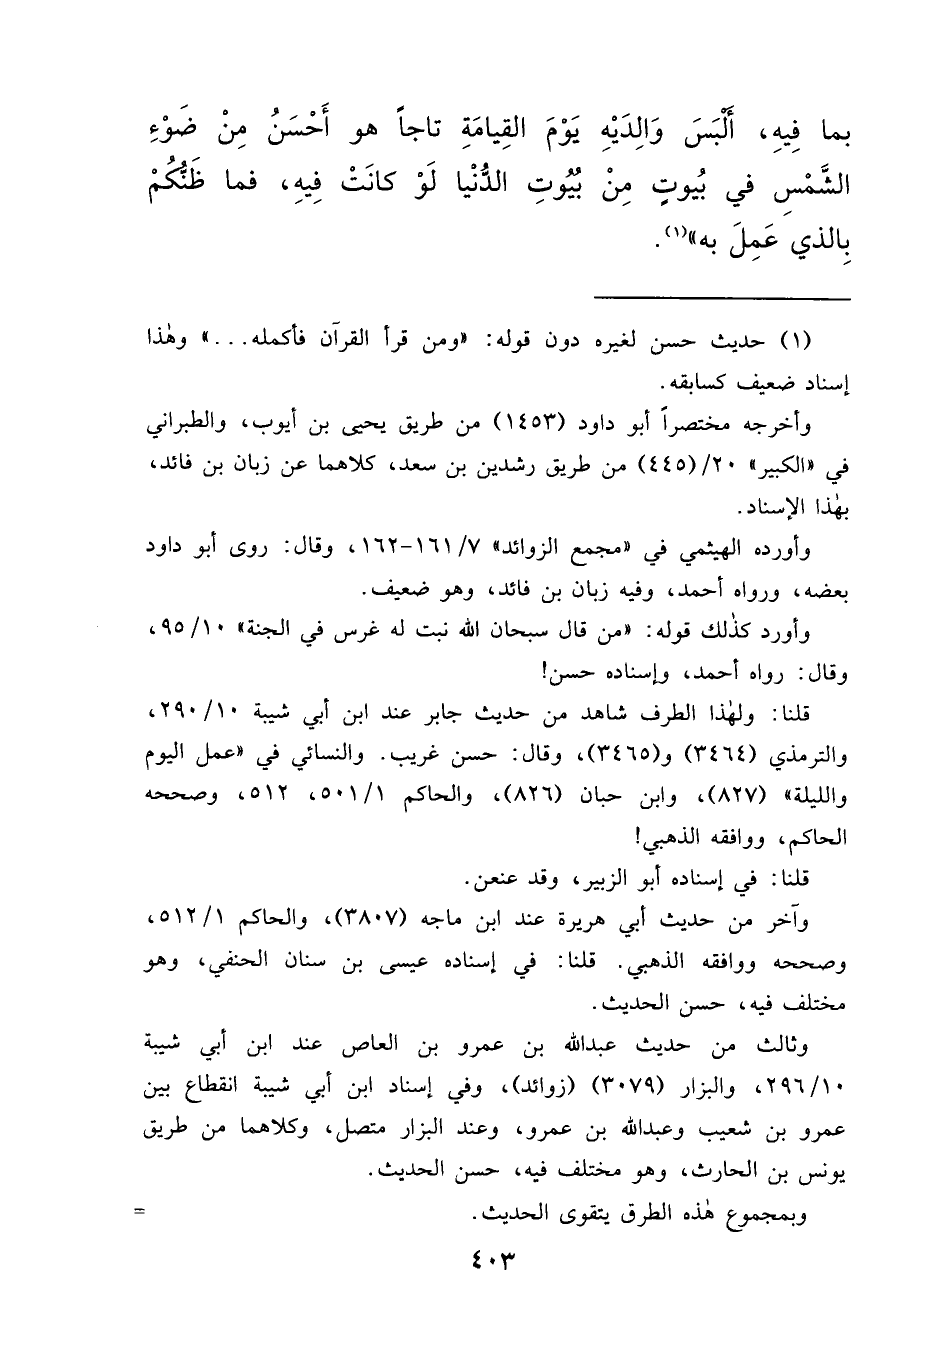 بما فِيهِ، أَلْبَسَ وَالِدَيْهِ يَوْمَ القِيامَةِ تاجاً هو أَحْسَنُ مِنْ ضَوْءِ
الشَّمْسِ في بُيوتٍ مِنْ بُيُوتِ الدُّنْيا لَو كانَتْ فِيهِ، فما ظَنُّكُمْ
بِالذي عَمِلَ به»(١).
(١) حديث حسن لغيره دون قوله: «ومن قرأ القرآن فأكمله...» وهٰذا
إسناد ضعيف كسابقه.
وأخرجه مختصراً أبو داود (١٤٥٣) من طريق يحيى بن أيوب، والطبراني
في «الكبير» ٢٠/(٤٤٥) من طريق رشدين بن سعد، كلاهما عن زبان بن فائد،
بهٰذا الإسناد.
وأورده الهيثمي في «مجمع الزوائد» ٧/١٦١-١٦٢، وقال: روى أبو داود
بعضه، ورواه أحمد، وفيه زبان بن فائد، وهو ضعيف.
وأورد كذٰلك قوله: «من قال سبحان الله نبت له غرس في الجنة» ١٠/٩٥،
وقال: رواه أحمد، وإسناده حسن!
قلنا: ولهٰذا الطرف شاهد من حديث جابر عند ابن أبي شيبة ١٠/٢٩٠،
والترمذي (٣٤٦٤) و(٣٤٦٥)، وقال: حسن غريب. والنسائي في «عمل اليوم
والليلة» (٨٢٧)، وابن حبان (٨٢٦)، والحاكم ١/٥٠١، ٥١٢، وصححه
الحاكم، ووافقه الذهبي!
قلنا: في إسناده أبو الزبير، وقد عنعن.
وآخر من حديث أبي هريرة عند ابن ماجه (٣٨٠٧)، والحاكم ١/٥١٢،
وصححه ووافقه الذهبي. قلنا: في إسناده عيسى بن سنان الحنفي، وهو
مختلف فيه، حسن الحديث.
وثالث من حديث عبدالله بن عمرو بن العاص عند ابن أبي شيبة
١٠/٢٩٦، والبزار (٣٠٧٩) (زوائد)، وفي إسناد ابن أبي شيبة انقطاع بين
عمرو بن شعيب وعبدالله بن عمرو، وعند البزار متصل، وكلاهما من طريق
يونس بن الحارث، وهو مختلف فيه، حسن الحديث.
وبمجموع هٰذه الطرق يتقوى الحديث. =
٤٠٣